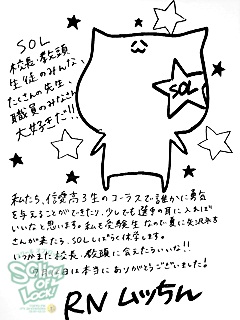 SOL
校長・教頭
生徒のみんな
たくさんの先生、
職員のみなさん
大好きだ!!
SOL
私たち、信愛高3生のコーラスで誰かに勇気
を与えることができたり、少しでも選手の耳に入れば
いいなと思います。私も受験生なので夏に矢沢先生
さんが来たら、SOLしばらく休学します。
いつかまた校長、教頭に会えたらいいな!!
の 日は本当にありがとうございました!
RN ムッちん
School of Lock!